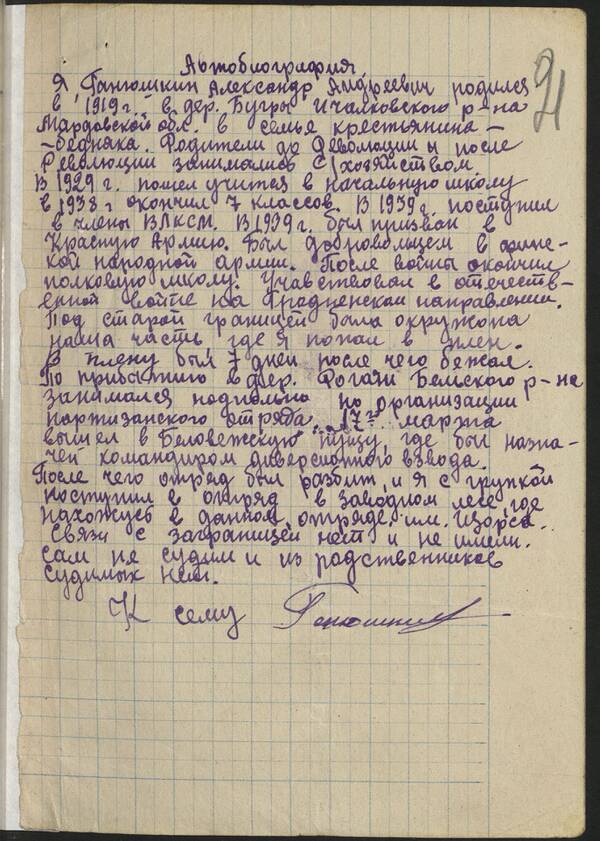 Автобиография
91
Я, Ганюшкин Александр Андреевич родился
в 1919 г. в дер. Бугры Ичалковского р-на
Мардовской обл. в семье крестьянина-
-бедняка. Родители до Революции и после
Революции занимались С/хозяйством.
В 1929 г. пошел учится в начальную школу
в 1938 г окончил 7 классов. В 1939 г. поступил
в члены ВЛКСМ. В 1939 г. был призван в
Красную Армию. Был добровольцем в финс-
кой народной армии. После войны окончил
полковую школу. Учавствовал в отечеств-
енной войне на Гродненском направлении.
Под старой границей была окружона
наша часть, где я попал в плен.
В плену был 7 дней после чего бежал.
По прибытию в дер. Рогачи Бельского р-на
занимался подпольно по организации
партизанского отряда. 17го марта
вышел в Беловежскую пущу, где был назна-
чен командиром диверсионного взвода.
После чего отряд был разбит, и я с групкой
поступил в отряд в заводном лесе, где
нахожусь в данном отряде им.
Связи с заграницей нет и не имели.
сам не судим и из родственников
судимых нет.
К сему Ганюшкин